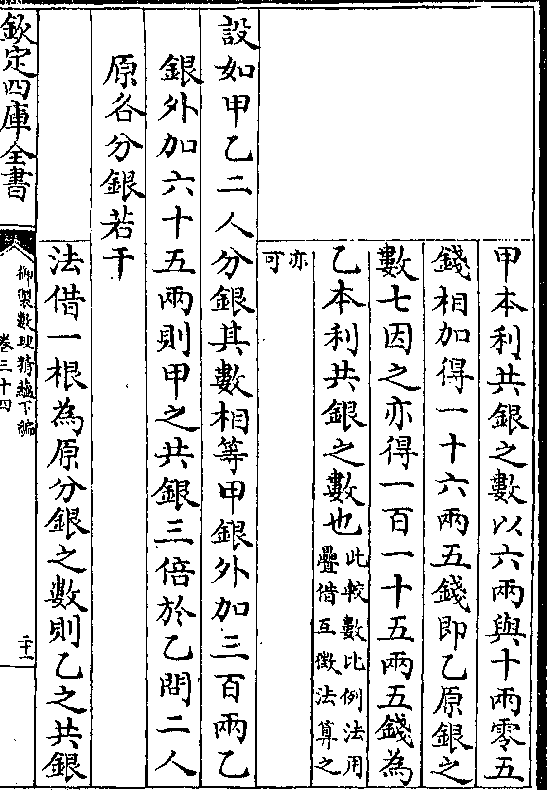 甲本利共銀之數以六兩與十兩零五
錢相加得一十六兩五錢即乙原銀之
數七因之亦得一百一十五兩五錢為
乙本利共銀之數也此較數比例法用
疊借互徵法算之
亦
可
設如甲乙二人分銀其數相等甲銀外加三百兩乙
銀外加六十五兩則甲之共銀三倍於乙問二人
原各分銀若干
法借一根為原分銀之數則乙之共銀
欽定四庫全書
御製數理精蘊下編
卷三十四
二十一